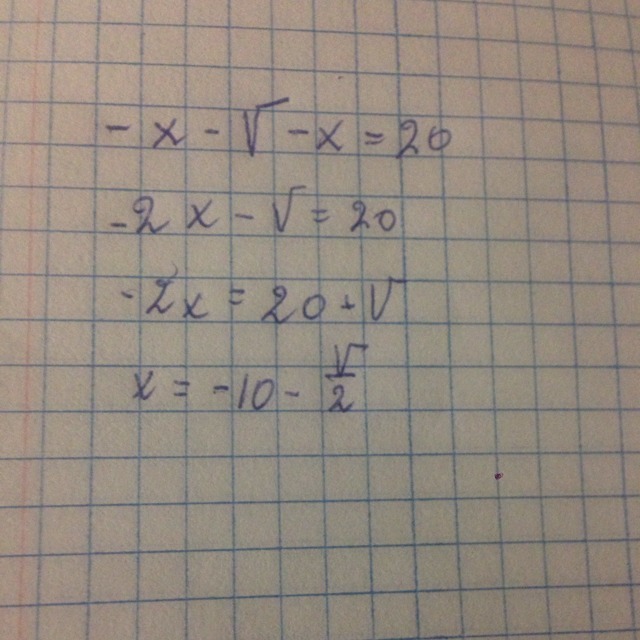 - x - √ - x = 20
-2x - √ = 20
-2x = 20 + √
x = -10 - √/2